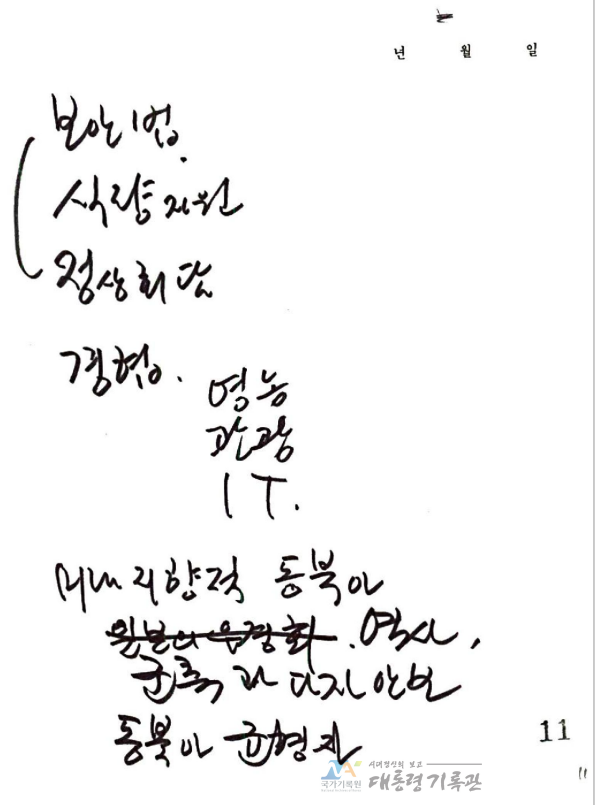 년 월 일
보안법.
식량지원
정상회담
경협.
영농
관광
IT.
미래지향적 동북아
일본의 우경화. 역사,
군축과 다자안보
동북아 균형자
11
시대정신의 보고
국가기록원 대통령기록관
11